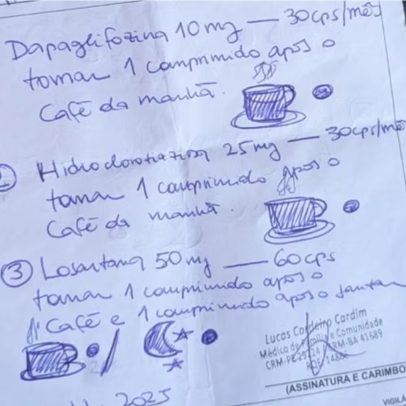 Dapaglifozina 10mg — 30cps/mês
tomar 1 comprimido após o
Café da manhã.
Hidroclorotiazina 25mg — 30cps/mês
tomar 1 comprimido após o
Café da manhã.
③ Losartana 50mg — 60cps
tomar 1 comprimido após o
Café e 1 comprimido após o jantar
Lucas Cordeiro Cardim
Médico de Família e Comunidade
CRM-BA 41589
(ASSINATURA E CARIMBO
2025